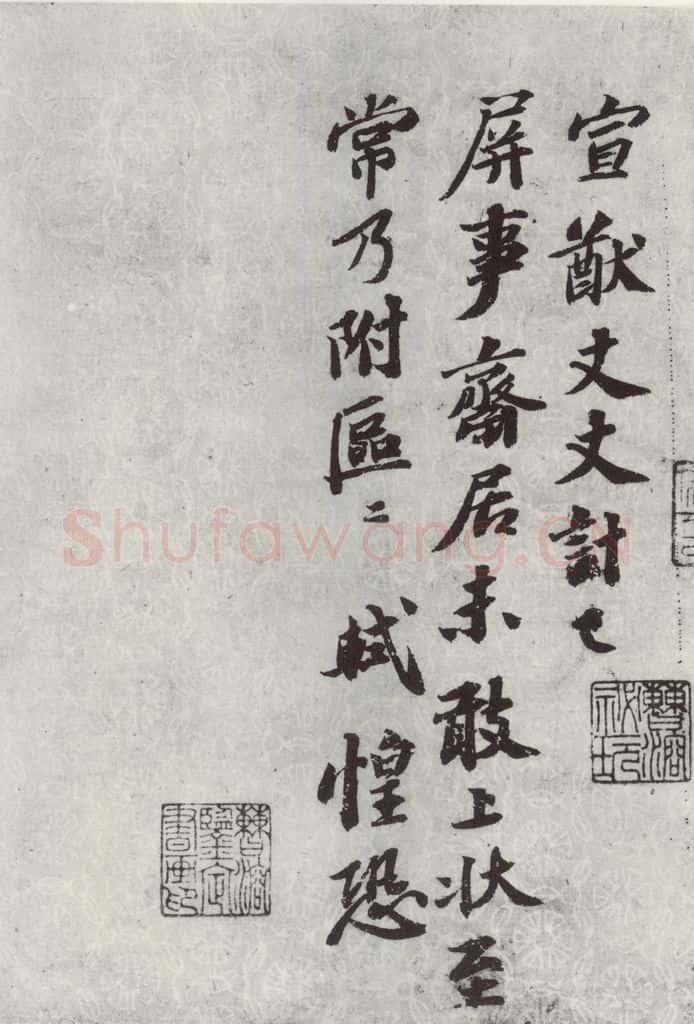 宣猷丈丈計已
屏事齋居未敢上狀至
常乃附區〻 軾惶恐
Shufawang.CN